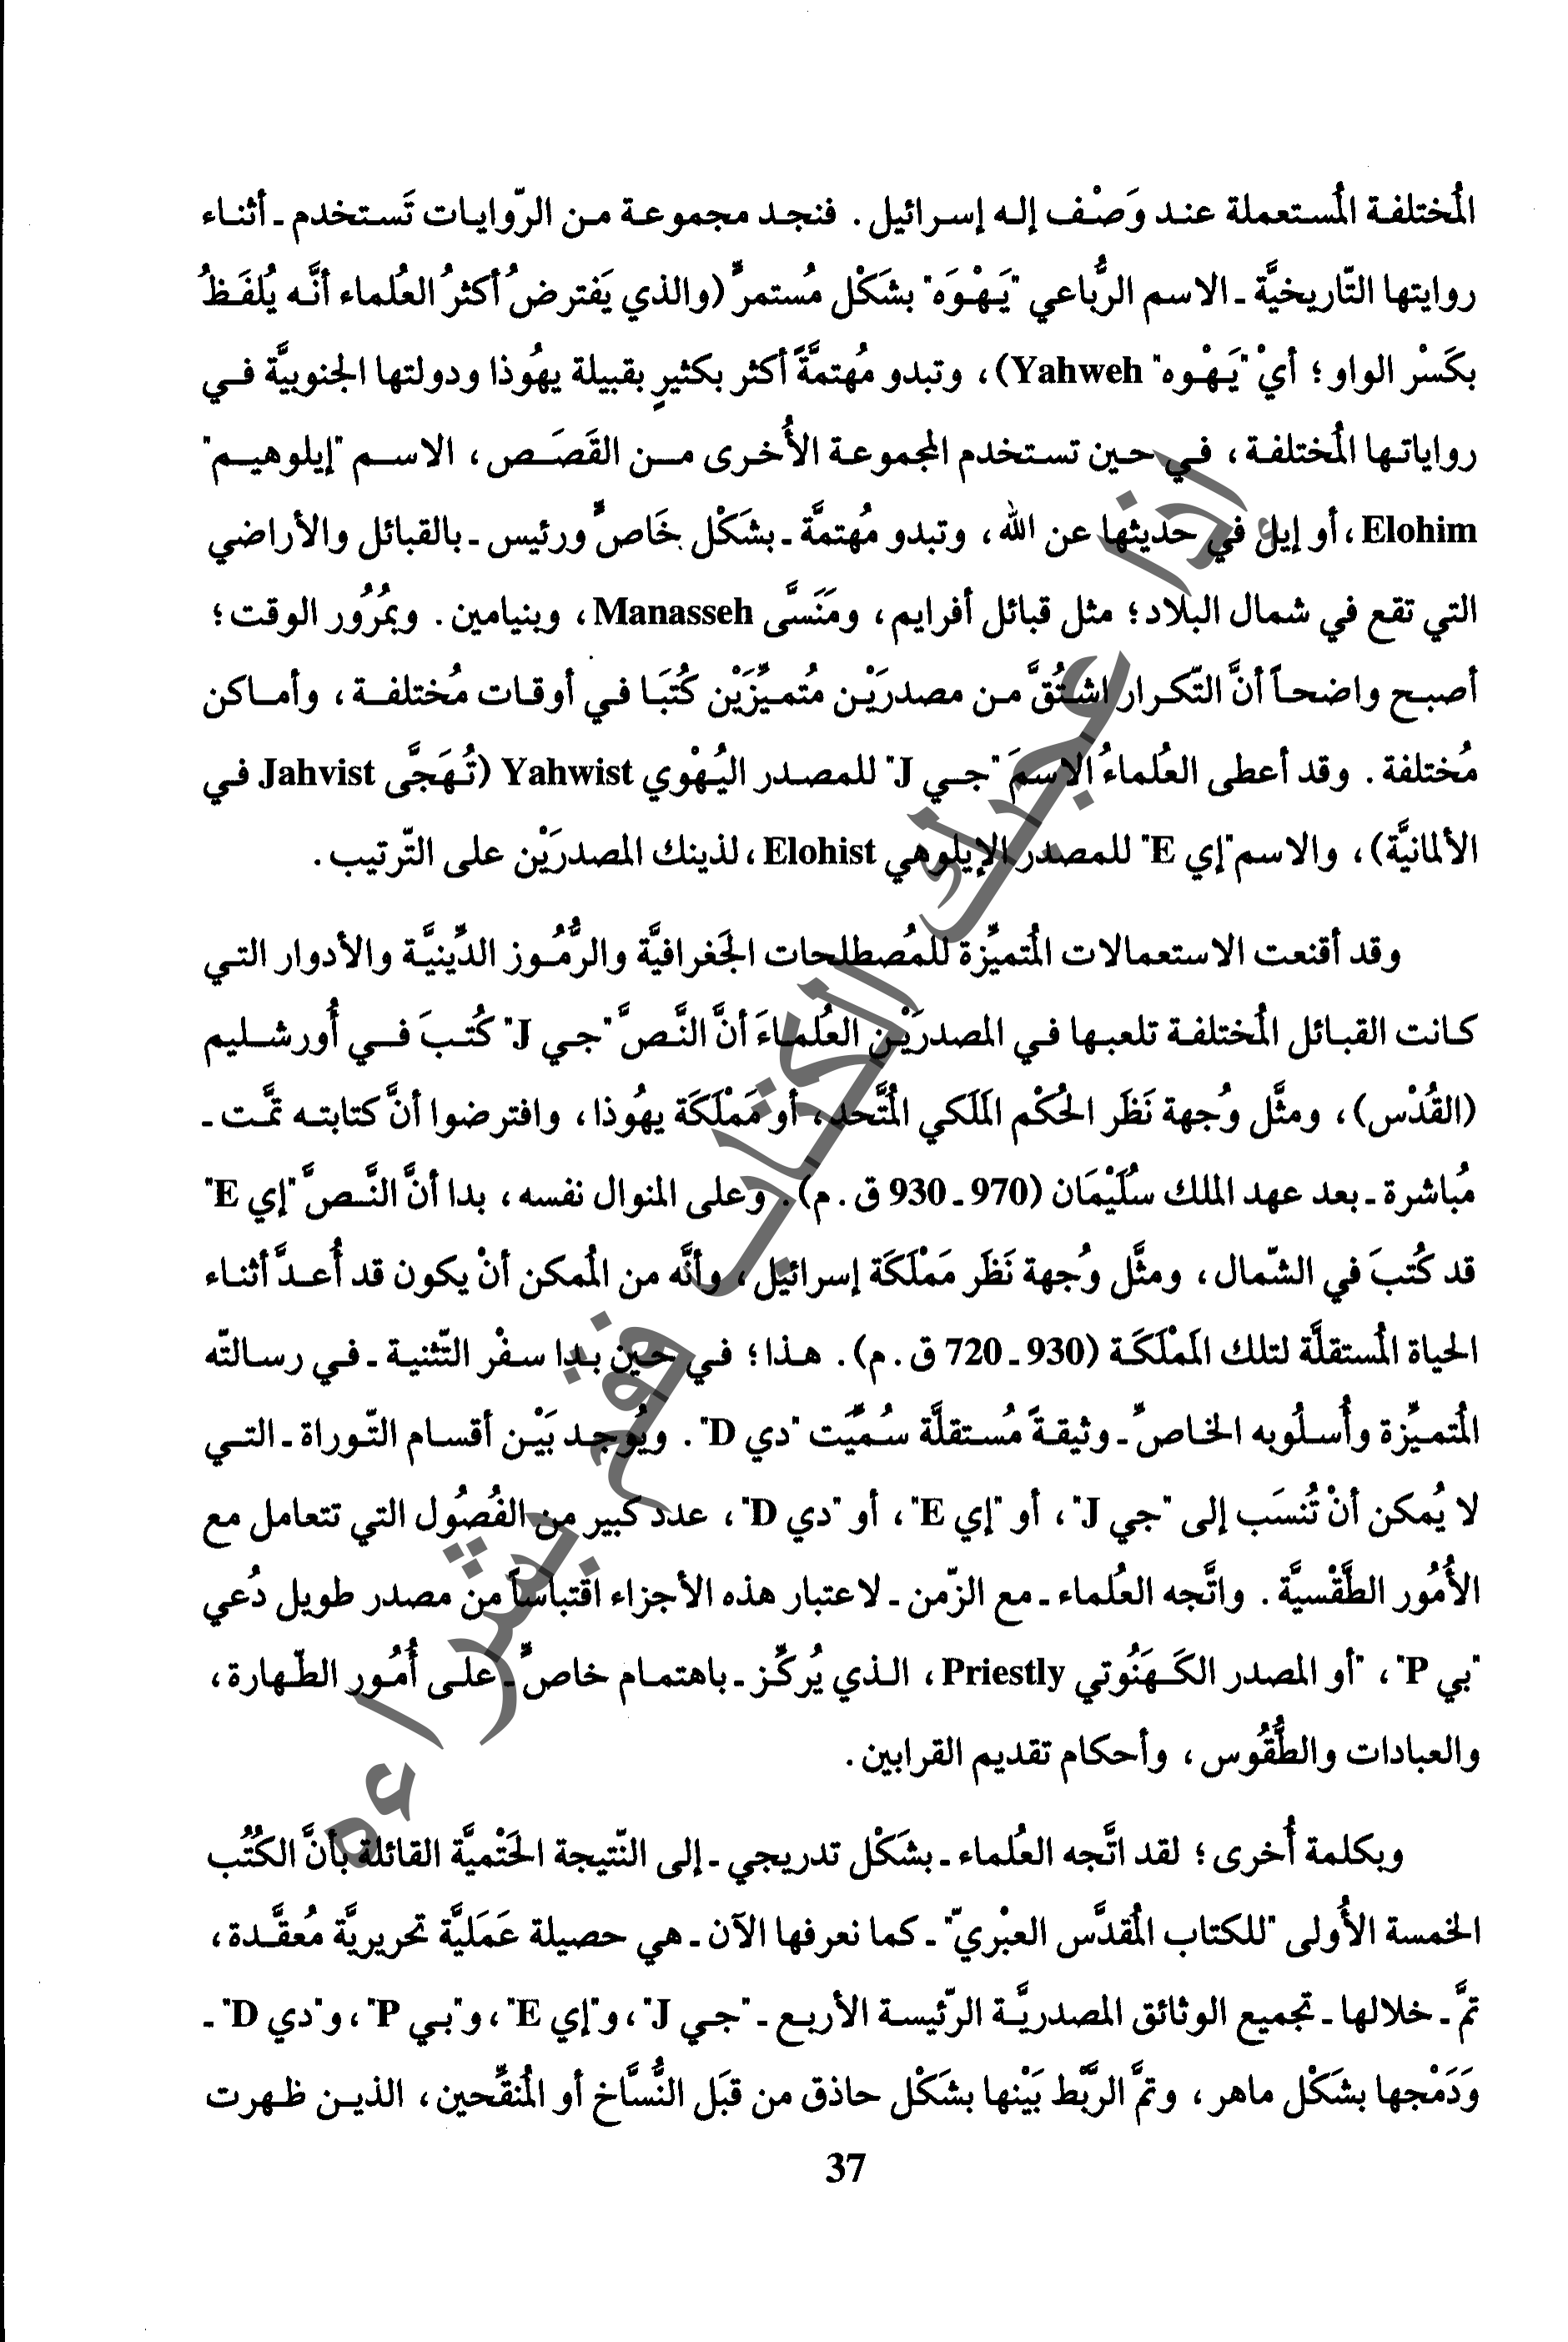 المُختلفة المُستعملة عند وَصْف إله إسرائيل. فنجد مجموعة من الرّوايات تَستخدم ـ أثناء
روايتها التّاريخيَّة ـ الاسم الرُّباعي "يَهْوَه" بشَكْل مُستمرٍّ (والذي يَفترضُ أكثرُ العُلماء أنَّه يُلفَظُ
بكَسْر الواو؛ أيْ "يَهْوِه" Yahweh)، وتبدو مُهتمَّةً أكثر بكثيرٍ بقبيلة يهُوذا ودولتها الجنوبيَّة في
رواياتها المُختلفة، في حين تستخدم المجموعة الأُخرى من القَصَص، الاسم "إيلوهيم"
Elohim، أو إيل في حديثها عن الله، وتبدو مُهتمَّة ـ بشَكْل خَاصٍّ ورئيس ـ بالقبائل والأراضي
التي تقع في شمال البلاد؛ مثل قبائل أفرايم، ومَنَسَّى Manasseh، وبنيامين. وبمُرُور الوقت؛
أصبح واضحاً أنَّ التّكرار اشتُقَّ من مصدرَيْن مُتميِّزَيْن كُتبَا في أوقات مُختلفة، وأماكن
مُختلفة. وقد أعطى العُلماءُ الاسمَ "جي J" للمصدر اليُهْوي Yahwist (تُهَجَّى Jahvist في
الألمانيَّة)، والاسم "إي E" للمصدر الإيلوهي Elohist، لذينك المصدرَيْن على التّرتيب.
وقد أقنعت الاستعمالات المُتميِّزة للمُصطلحات الجَغرافيَّة والرُّمُوز الدِّينيَّة والأدوار التي
كانت القبائل المُختلفة تلعبها في المصدرَيْن العُلماءَ أنَّ النَّصَّ "جي J" كُتبَ في أُورشليم
(القُدْس)، ومثَّل وُجهة نَظَر الحُكْم المَلَكي المُتَّحد، أو مَمْلَكَة يهُوذا، وافترضوا أنَّ كتابته تمَّت ـ
مُباشرة ـ بعد عهد الملك سُلَيْمَان (970 ـ 930 ق. م). وعلى المنوال نفسه، بدا أنَّ النَّصَّ "إي E"
قد كُتبَ في الشّمال، ومثَّل وُجهة نَظَر مَمْلَكَة إسرائيل، وأنَّه من المُمكن أنْ يكون قد أُعدَّ أثناء
الحياة المُستقلَّة لتلك المَمْلَكَة (930 ـ 720 ق. م). هذا؛ في حين بدا سفْر التّثنية ـ في رسالته
المُتميِّزة وأُسلُوبه الخاصِّ ـ وثيقةً مُستقلَّة سُمِّيَت "دي D". ويُوجد بَيْن أقسام التّوراة ـ التي
لا يُمكن أنْ تُنسَب إلى "جي J"، أو "إي E"، أو "دي D"، عدد كبير من الفُصُول التي تتعامل مع
الأُمُور الطَّقْسيَّة. واتَّجه العُلماء ـ مع الزّمن ـ لاعتبار هذه الأجزاء اقتباساً من مصدر طويل دُعي
"بي P"، "أو المصدر الكَهَنُوتي Priestly، الذي يُركِّز ـ باهتمام خاصٍّ ـ على أُمُور الطّهارة،
والعبادات والطُّقُوس، وأحكام تقديم القرابين.
وبكلمة أُخرى؛ لقد اتَّجه العُلماء ـ بشَكْل تدريجي ـ إلى النّتيجة الحَتْميَّة القائلة بأنَّ الكُتُب
الخمسة الأُولى "للكتاب المُقدَّس العبْريّ" ـ كما نعرفها الآن ـ هي حصيلة عَمَليَّة تحريريَّة مُعقَّدة،
تمَّ ـ خلالها ـ تجميع الوثائق المصدريَّة الرّئيسة الأربع ـ "جي J"، و"إي E"، و"بي P"، و"دي D" ـ
وَدَمْجها بشَكْل ماهر، وتمَّ الرَّبْط بَيْنها بشَكْل حاذق من قبَل النُّسَّاخ أو المُنقِّحين، الذين ظهرت
37
إذا عجبك الكتاب فقم بشراءه